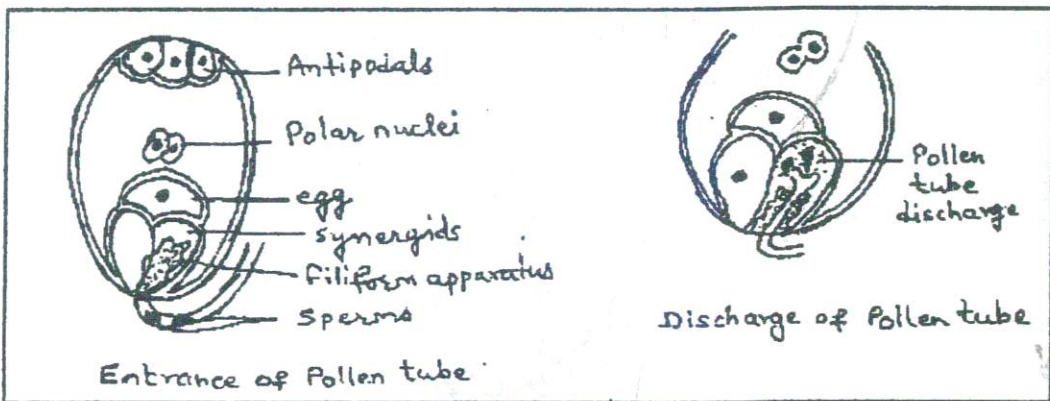 Antipodals
Polar nuclei
egg
Synergids
Filiform apparatus
Sperms
Entrance of Pollen tube
Pollen
tube
discharge
Discharge of Pollen tube